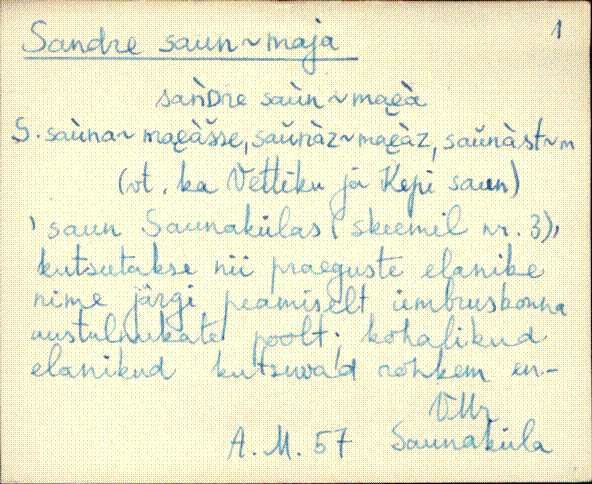 1
Sandre saun ~ maja
sàǹDre saùn ~ maεà
S. saùna ~ maεàšse, saŭnàz ~ maεàz, saŭnàst ~ m
(vt. ka Vettiku ja Kepi saun)
saun Saunakülas (skeemil nr. 3),
kutsutakse nii praeguste elanike
nime järgi peamiselt ümbruskonna
uustulnukate poolt; kohalikud
elanikud kutsuvad rohkem en-
VMr
A. M. 57 Saunaküla